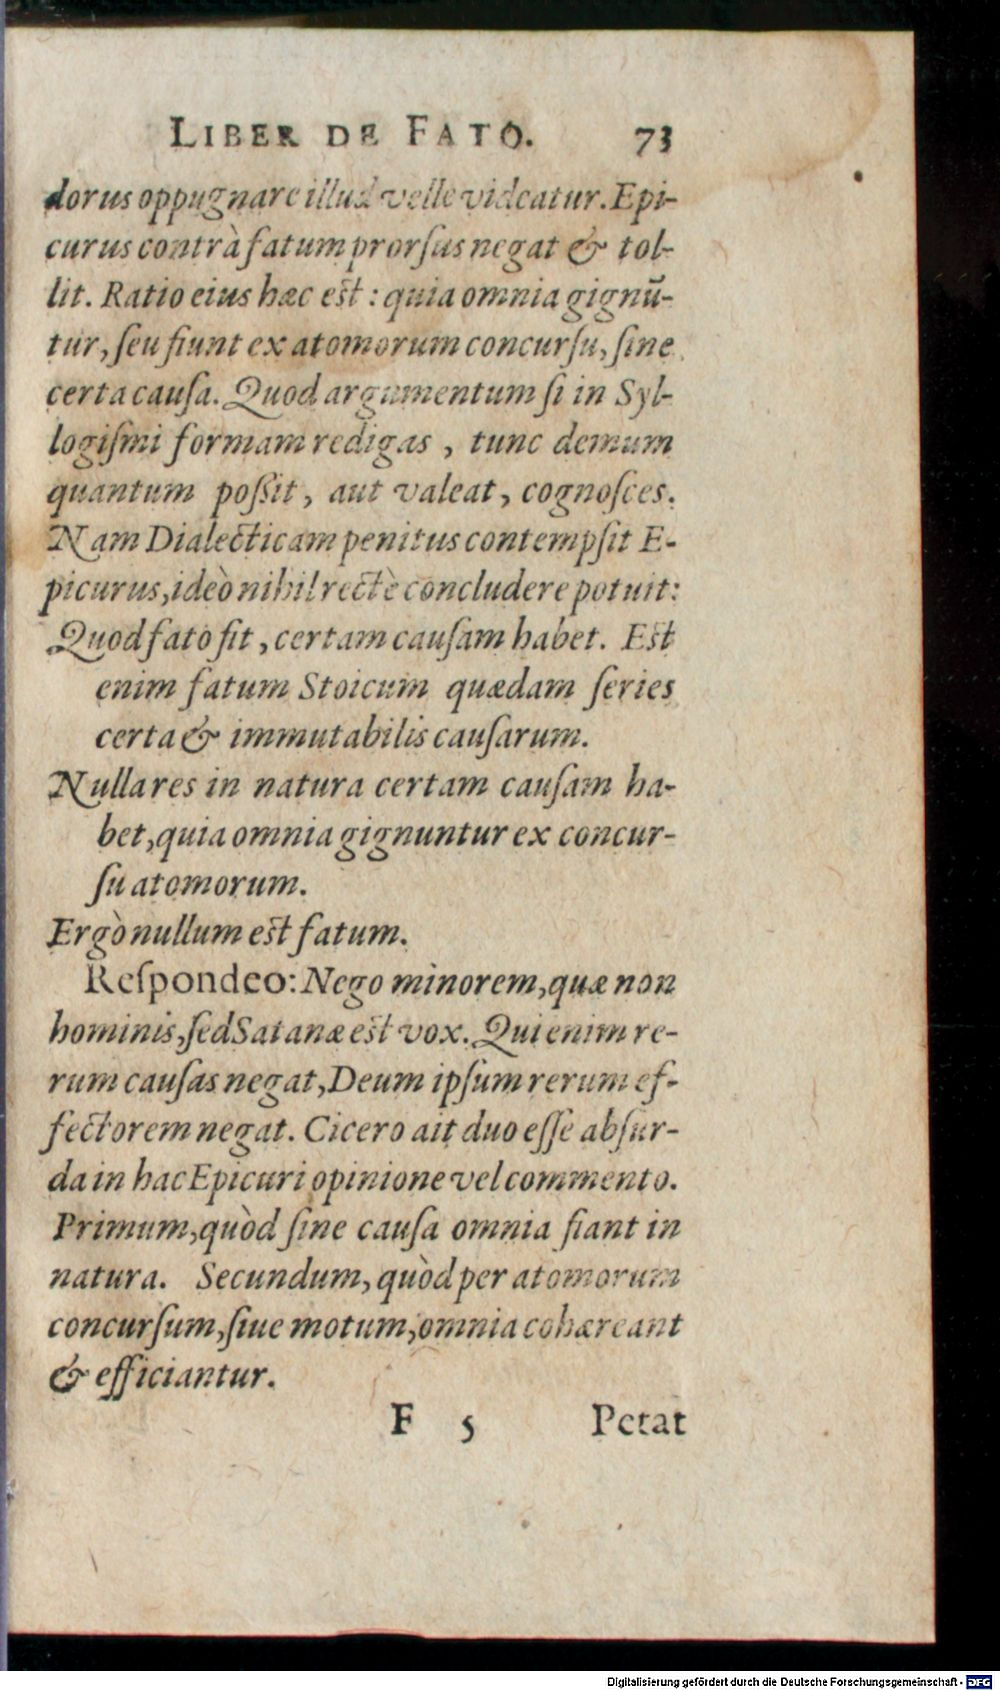 LIBER DE FATO. 73
dorus oppugnare illud velle videatur. Epi-
curus contrà fatum prorſus negat & tol-
lit. Ratio eius hæc est : quia omnia gignū-
tur, ſeu fiunt ex atomorum concurſu, ſine
certa cauſa. Quod argumentum ſi in Syl-
logiſmi formam redigas , tunc demum
quantum poſſit , aut valeat , cognoſces.
Nam Dialecticam penitus contempſit E-
picurus, ideò nihil rectè concludere potuit:
Quod fato fit , certam cauſam habet. Est
enim fatum Stoicum quædam ſeries
certa & immutabilis cauſarum.
Nulla res in natura certam cauſam ha-
bet, quia omnia gignuntur ex concur-
ſu atomorum.
Ergò nullum est fatum.
Reſpondeo: Nego minorem, quæ non
hominis, ſed Satanæ est vox. Qui enim re-
rum cauſas negat, Deum ipſum rerum ef-
fectorem negat. Cicero ait duo eſſe abſur-
da in hac Epicuri opinione vel commento.
Primum, quòd ſine cauſa omnia fiant in
natura. Secundum, quòd per atomorum
concurſum, ſiue motum, omnia cohæreant
& efficiantur.
F 5 Petat
Digitalisierung gefördert durch die Deutsche Forschungsgemeinschaft - DFG